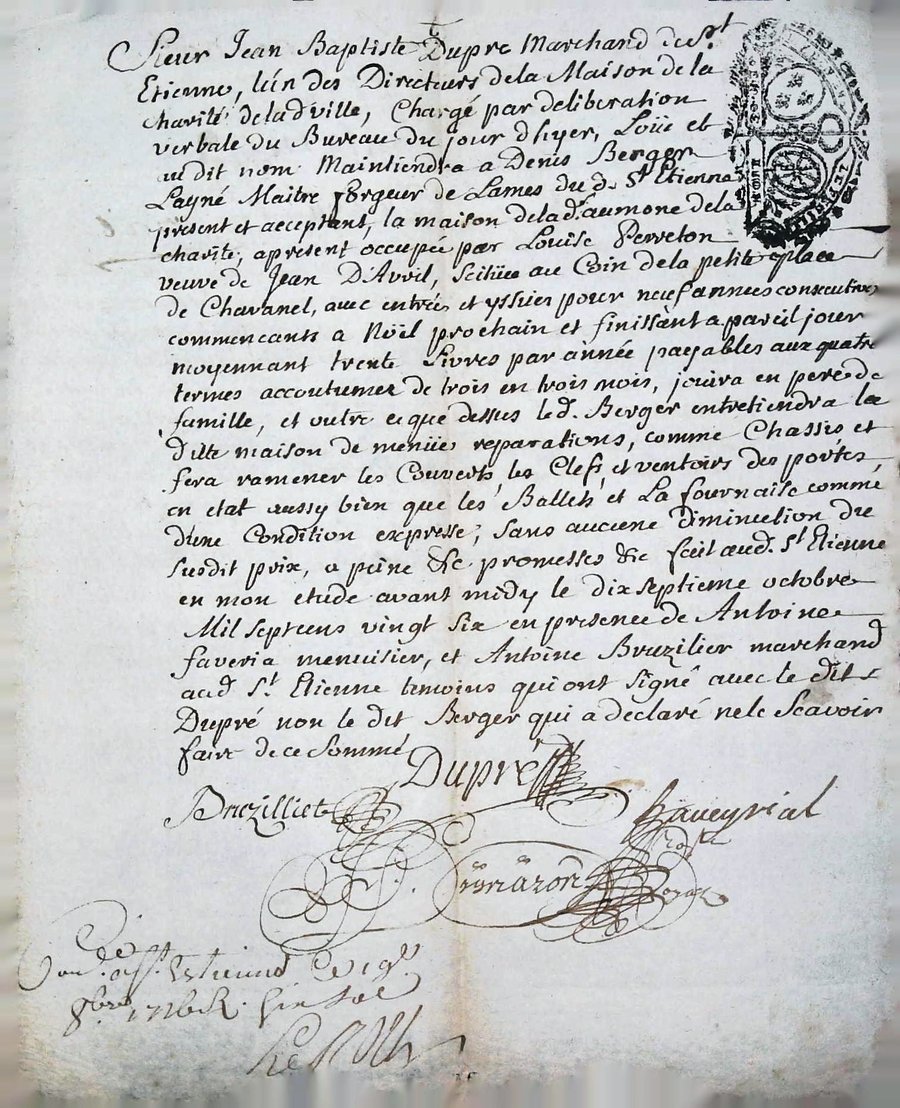 Sieur Jean Baptiste Dupré Marchand de St
Etienne, l'un des Directeurs de la Maison de la
charité de lad ville, Chargé par deliberation
verbale du Bureau du jour d'hyer, Loüe et
au dit nom Maintiendra a Denis Berger
Layné Maitre forgeur de Lames du d. St Etienne
present et acceptant, la maison de lad. aumone de la
charité, apresent occupée par Louise Perreton
veuve de Jean D'Avril, scitüée au Coin de la petite place
de Chavanel, avec entrées et yssües pour neuf années consecutives
commencants a Noël prochain et finissant a pareil jour
moyennant trente Livres par année payables aux quatre
termes accoutumez de trois en trois mois, joüira en pere de
famille, et outre ce que dessus led. Berger entretiendra la
ditte maison de menües reparations, comme Chassis et
fera ramener les Couverts, les Clefs et ventoirs des portes,
en etat aussy bien que les Ballets et La fournaise comme
d'une Condition expresse, sans aucune diminution du
susdit prix, a peine &c promesses &c fait aud. St Etienne
en mon etude avant midy le dix septieme octobre
Mil sept cens vingt six en presence de Antoine
faveria menuisier, et Antoine Bruzilier marchand
aud. St. Etienne temoins qui ont signé avec le dit
Dupré non le dit Berger qui a declaré ne le Scavoir
faire de ce Sommé
Dupré
Bruzilliet
faveyrial
St. Estienne Le 19e
8bre 1726 R. Six sols